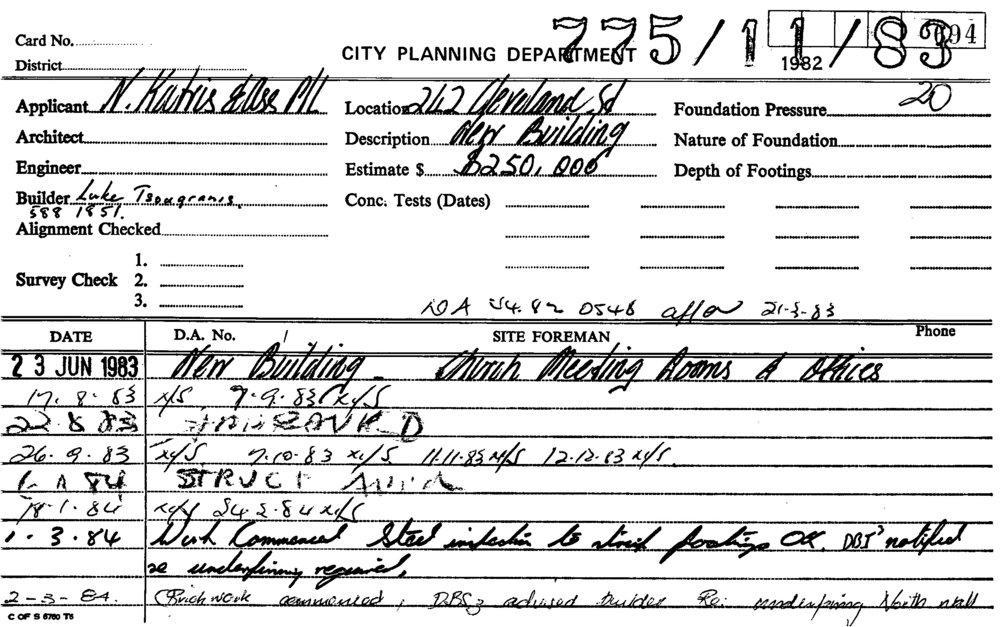 775/11/83
694
Card No.
CITY PLANNING DEPARTMENT
1982
District
Applicant N. Katris & Ass P/L Location 242 Cleveland St Foundation Pressure 20
Architect Description New Building Nature of Foundation
Engineer Estimate $ $250,000 Depth of Footings
Builder Luke Tsougranis. Conc. Tests (Dates)
588 1851.
Alignment Checked
1.
Survey Check 2.
3.
DA 44.82 0548 21-3-83
DATE D.A. No. SITE FOREMAN Phone
23 JUN 1983 New Building - Church Meeting Rooms & Offices
17.8.83 N/S 7.9.83 N/S
22 8 83
26.9.83 N/S 7.10.83 N/S 11.11.83 N/S 12.12.83 N/S.
STRUCT
18.1.84 N/S 24.2.84 N/S
1.3.84 Work Commenced Steel inspection to strip footings OK. DBI notified
re underpinning required.
2-3-84. Brickwork commenced, advised builder Re: underpinning North wall
C OF S 6760 T5